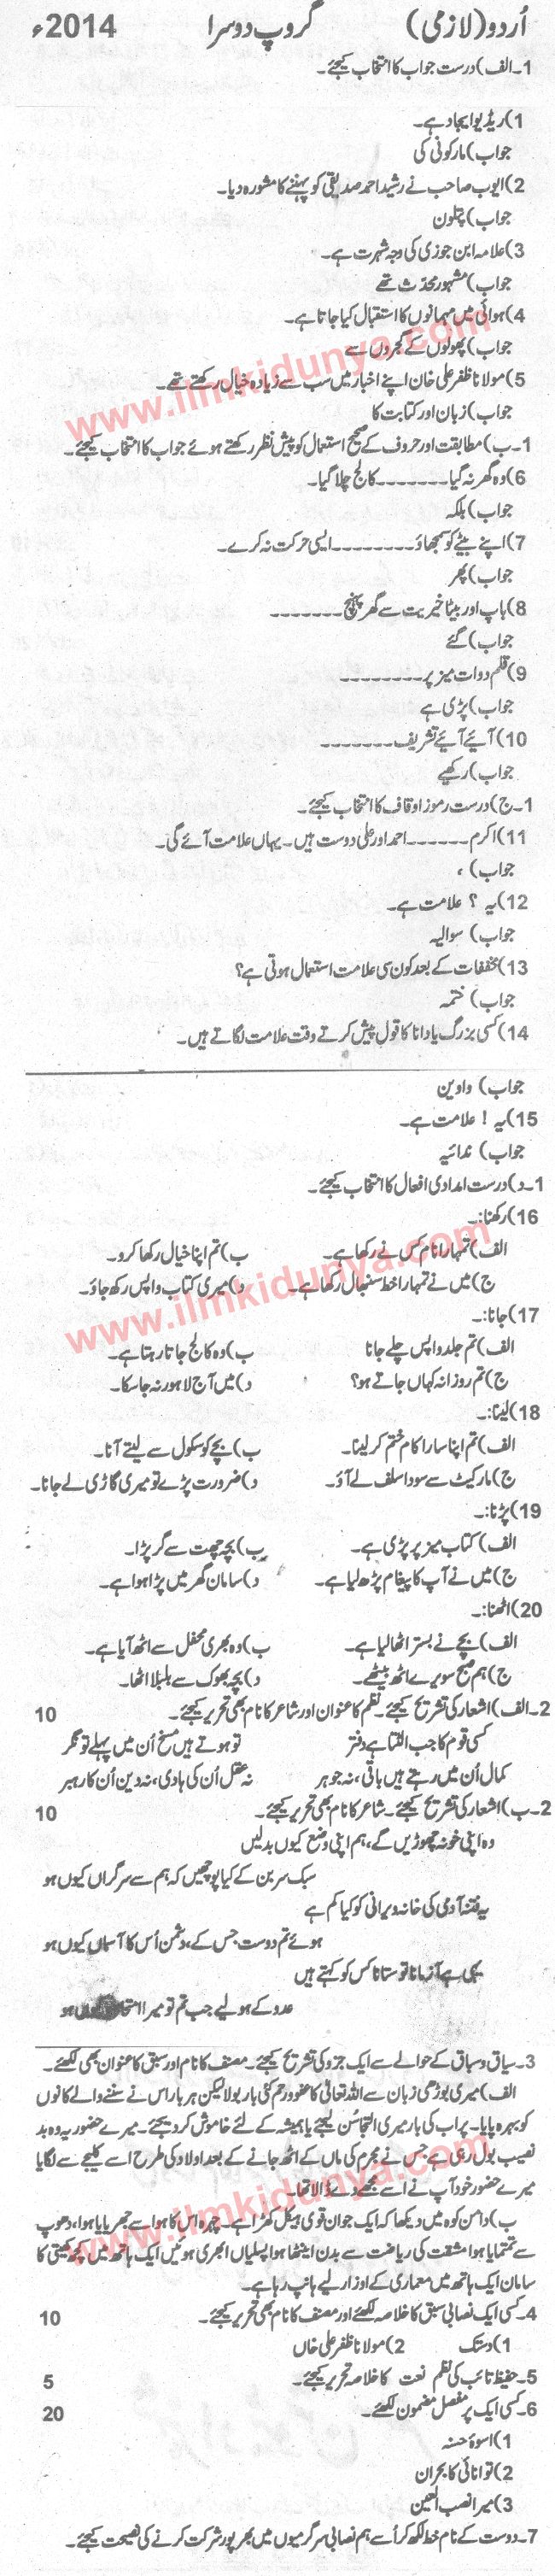 اُردو (لازمی) گروپ دوسرا 2014ء
1۔ الف) درست جواب کا انتخاب کیجئے۔
1) ریڈیو ایجاد ہے۔
جواب) مارکونی کی
2) ایوب صاحب نے رشید احمد صدیقی کو پہننے کا مشورہ دیا۔
جواب) پتلون
3) علامہ ابن جوزی کی وجہ شہرت ہے۔
جواب) مشہور محدّث تھے
4) ہوائی میں مہمانوں کا استقبال کیا جاتا ہے۔
جواب) پھولوں کے گجروں سے
5) مولانا ظفر علی خان اپنے اخبار میں سب سے زیادہ خیال رکھتے تھے۔
جواب) زبان اور کتابت کا
1۔ ب) مطابقت اور حروف کے صحیح استعمال کو پیش نظر رکھتے ہوئے جواب کا انتخاب کیجئے۔
6) وہ گھر نہ گیا۔۔۔۔۔۔۔۔ کالج چلا گیا۔
جواب) بلکہ
7) اپنے بیٹے کو سمجھاؤ۔۔۔۔۔۔۔۔ ایسی حرکت نہ کرے۔
جواب) پھر
8) باپ اور بیٹا خیریت سے گھر پہنچ۔۔۔۔۔۔۔
جواب) گئے
9) قلم دوات میز پر۔۔۔۔۔۔۔۔
جواب) پڑی ہے
10) آئیے آئیے تشریف۔۔۔۔۔۔۔
جواب) رکھیے
1۔ ج) درست رموز اوقاف کا انتخاب کیجئے۔
11) اکرم۔۔۔۔۔۔ احمد اور علی دوست ہیں۔ یہاں علامت آئے گی۔
جواب) ،
12) یہ ؟ علامت ہے۔
جواب) سوالیہ
13) مخففات کے بعد کون سی علامت استعمال ہوتی ہے؟
جواب) ختمہ
14) کسی بزرگ یا دانا کا قول پیش کرتے وقت علامت لگاتے ہیں۔
جواب) واوین
15) یہ ! علامت ہے۔
جواب) ندائیہ
1۔ د) درست امدادی افعال کا انتخاب کیجئے۔
16) رکھنا:۔
الف) تمہارا نام کس نے رکھا ہے۔ ب) تم اپنا خیال رکھا کرو۔
ج) میں نے تمہارا خط سنبھال رکھا ہے۔ د) میری کتاب واپس رکھ جاؤ۔
17) جانا:۔
الف) تم جلد واپس چلے جانا ب) وہ کالج جاتا رہتا ہے۔
ج) تم روزانہ کہاں جاتے ہو؟ د) میں آج لاہور نہ جا سکا۔
18) لینا:۔
الف) تم اپنا سارا کام ختم کر لینا۔ ب) بچے کو سکول سے لیتے آنا۔
ج) مارکیٹ سے سودا سلف لے آؤ۔ د) ضرورت پڑے تو میری گاڑی لے جانا۔
19) پڑنا:۔
الف) کتاب میز پر پڑی ہے۔ ب) بچہ چھت سے گر پڑا۔
ج) میں نے آپ کا پیغام پڑھ لیا ہے۔ د) سامان گھر میں پڑا ہوا ہے۔
20) اٹھنا:۔
الف) بچے نے بستر اٹھا لیا ہے۔ ب) وہ بھری محفل سے اٹھ آیا ہے۔
ج) ہم صبح سویرے اٹھ بیٹھے۔ د) بچہ بھوک سے بلبلا اٹھا۔
2۔ الف) اشعار کی تشریح کیجئے۔ نظم کا عنوان اور شاعر کا نام بھی تحریر کیجئے۔ 10
کسی قوم کا جب الٹتا ہے دفتر تو ہوتے ہیں مسخ اُن میں پہلے تونگر
کمال اُن میں رہتے ہیں باقی، نہ جوہر نہ عقل اُن کی ہادی، نہ دین اُن کا رہبر
2۔ ب) اشعار کی تشریح کیجئے۔ شاعر کا نام بھی تحریر کیجئے۔ 10
وہ اپنی خو نہ چھوڑیں گے، ہم اپنی وضع کیوں بدلیں
سبک سر بن کے کیا پوچھیں کہ ہم سے سرگراں کیوں ہو
یہ فتنہ آدمی کی خانہ ویرانی کو کیا کم ہے
ہوئے تم دوست جس کے، دشمن اُس کا آسماں کیوں ہو
یہی ہے آزمانا تو ستانا کس کو کہتے ہیں
عدو کے ہو لیے جب تم تو میرا امتحاں کیوں ہو
3۔ سیاق و سباق کے حوالے سے ایک جزو کی تشریح کیجئے۔ مصنف کا نام اور سبق کا عنوان بھی لکھئے۔
الف) میری بوڑھی زبان سے اللہ تعالیٰ کا عفو و رحم کئی بار بولا لیکن ہر بار اس نے سننے والے کانوں
کو بہرہ پایا۔ پر اب کی بار میری التجا سُن لیجئے یا ہمیشہ کے لئے خاموش کر دیجئے۔ میرے حضور یہ وہ بد
نصیب بول رہی ہے جس نے مجرم کی ماں کے اٹھ جانے کے بعد اولاد کی طرح اسے کلیجے سے لگایا
میرے حضور خود آپ نے اسے مجھے دے ڈالا تھا۔
ب) دامن کوہ میں دیکھا کہ ایک جوان قوی ہیکل کھڑا ہے۔ چہرہ اس کا ہوا سے جھریایا ہوا، دھوپ
سے تمتمایا ہوا مشقت کی ریاضت سے بدن اینٹھا ہوا پسلیاں ابھری ہوئیں ایک ہاتھ میں کچھ کھیتی کا
سامان ایک ہاتھ میں معماری کے اوزار لیے ہانپ رہا ہے۔
4۔ کسی ایک نصابی سبق کا خلاصہ لکھئے اور مصنف کا نام بھی تحریر کیجئے۔ 10
1) دستک 2) مولانا ظفر علی خاں
5۔ حفیظ تائب کی نظم نعت کا خلاصہ تحریر کیجئے۔ 5
6۔ کسی ایک پر مفصل مضمون لکھئے۔ 20
1) اسوۂ حسنہ
2) توانائی کا بحران
3) میرا نصب العین
7۔ دوست کے نام خط لکھ کر اُسے ہم نصابی سرگرمیوں میں بھرپور شرکت کرنے کی نصیحت کیجئے۔
www.ilmkidunya.com
www.ilmkidunya.com
www.ilmkidunya.com